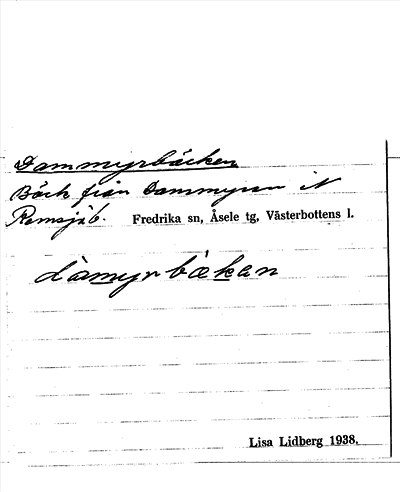 Dammyrbäcken
Bäck från Dammyran N
Remsjäb. Fredrika sn, Åsele tg, Västerbottens l.
dàmyrbækən
Lisa Lidberg 1938.